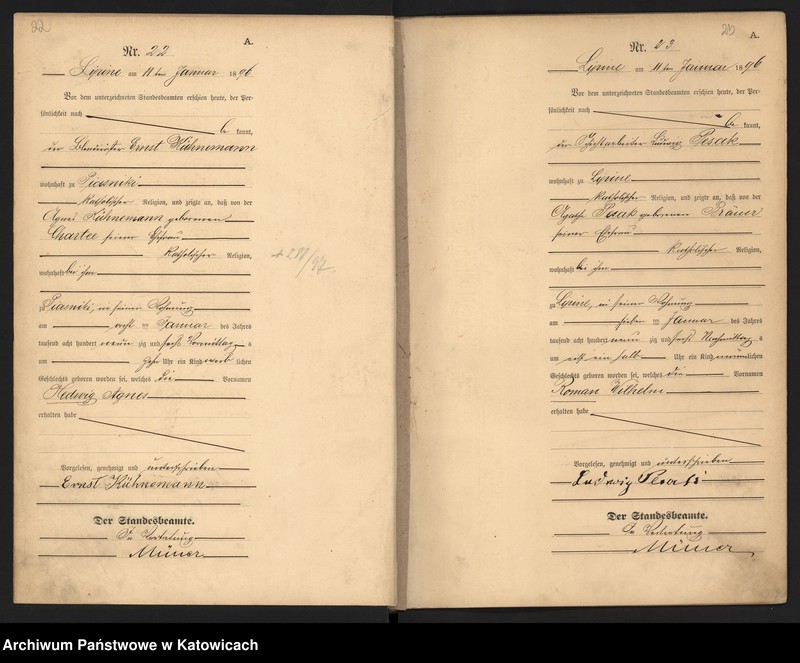 22
A.
Nr. 22
Lipine am 11 ten Januar 1896
Vor dem unterzeichneten Standesbeamten erschien heute, der Per-
sönlichkeit nach
be kannt,
der Ernst Kühnemann
wohnhaft zu Piasniki
katholischer Religion, und zeigte an, daß von der
Agnes Kühnemann geborenen
seiner Ehefrau
katholischer Religion,
wohnhaft bei ihm
zu Piasniki, in seiner Wohnung
am acht ten Januar des Jahres
tausend acht hundert neun zig und sechs Vormittag s
um Uhr ein Kind weib lichen
Geschlechts geboren worden sei, welches die Vornamen
Hedwig Agnes
erhalten habe
Vorgelesen, genehmigt und unterschrieben
Ernst Kühnemann
Der Standesbeamte.
In Vertretung
+ 281/97
23
A.
Nr. 23
Lipine am 11 ten Januar 1896
Vor dem unterzeichneten Standesbeamten erschien heute, der Per-
sönlichkeit nach
be kannt,
der Ludwig
wohnhaft zu Lipine
katholischer Religion, und zeigte an, daß von der
Agathe geborenen
seiner Ehefrau
katholischer Religion,
wohnhaft bei ihm
zu Lipine, in seiner Wohnung
am sieben ten Januar des Jahres
tausend acht hundert neun zig und sechs Nachmittag s
um ein halb Uhr ein Kind männ lichen
Geschlechts geboren worden sei, welches die Vornamen
Roman Wilhelm
erhalten habe
Vorgelesen, genehmigt und unterschrieben
Ludwig
Der Standesbeamte.
In Vertretung
Archiwum Państwowe w Katowicach